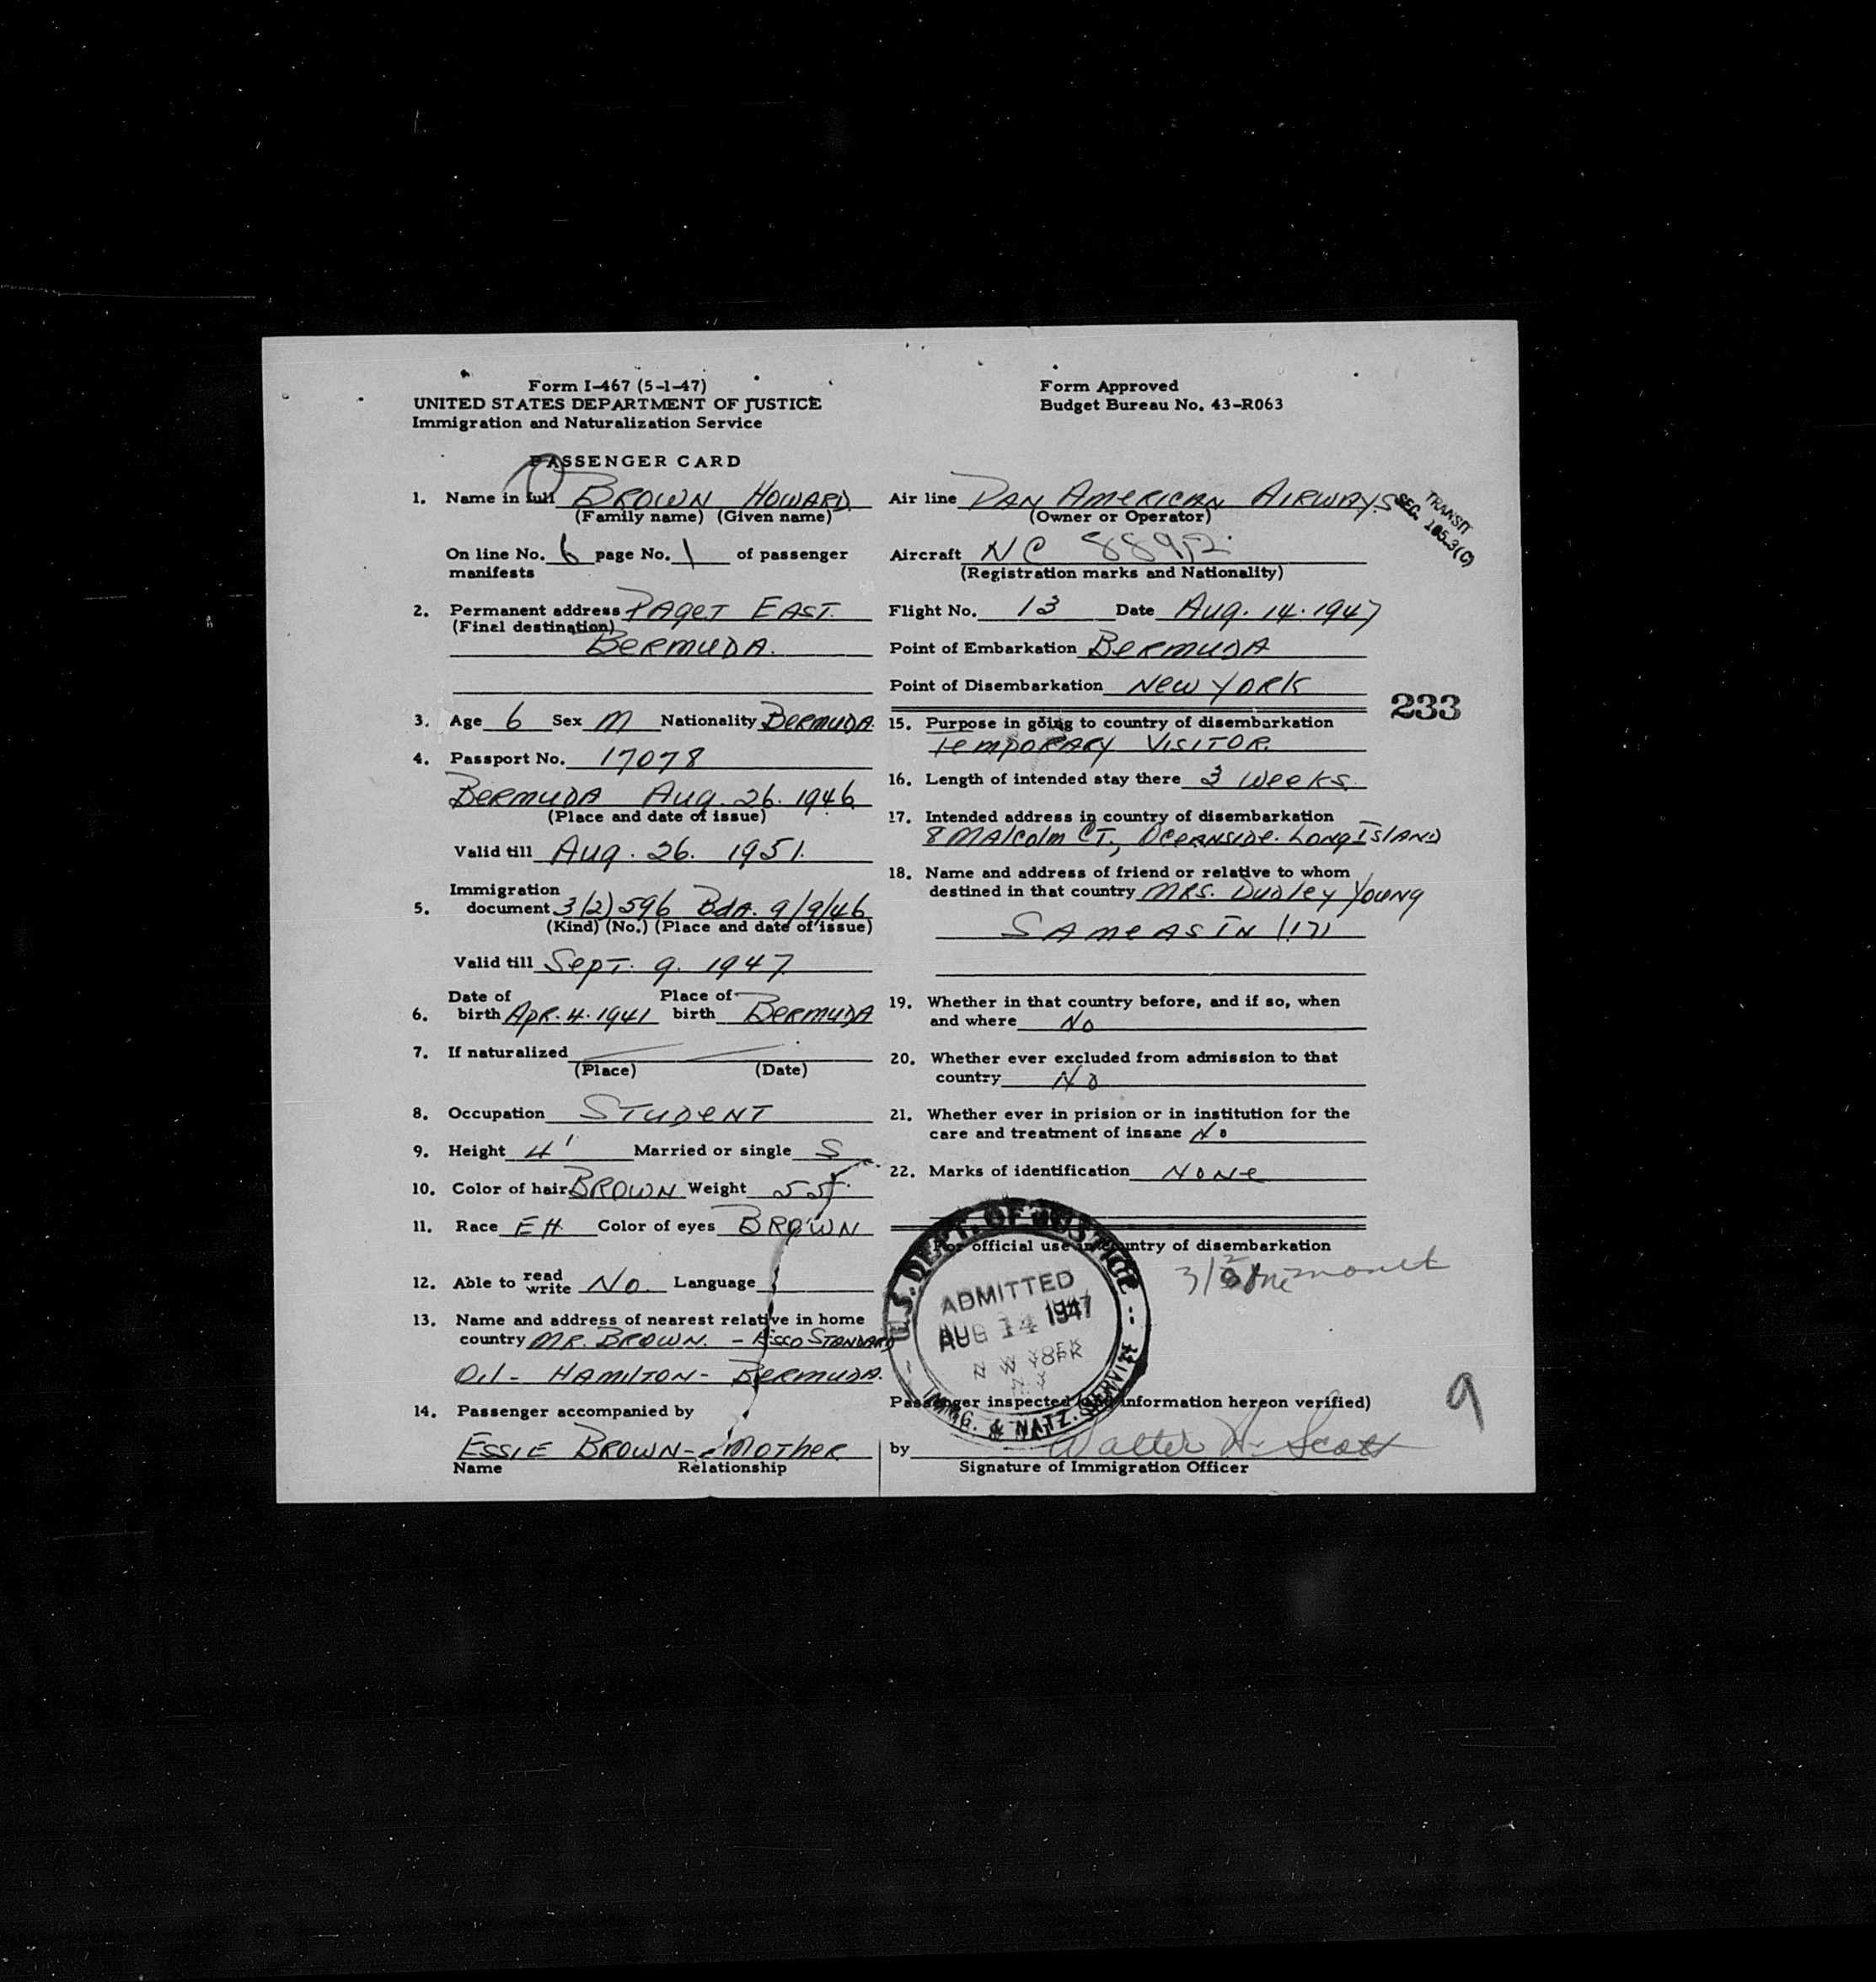 Form I-467 (5-1-47)
UNITED STATES DEPARTMENT OF JUSTICE
Immigration and Naturalization Service
Form Approved
Budget Bureau No. 43-R063
PASSENGER CARD
1. Name in full BROWN HOWARD
(Family name) (Given name)
On line No. 6 page No. 1 of passenger
manifests
2. Permanent address PAGET EAST.
(Final destination)
BERMUDA.
3. Age 6 Sex M Nationality BERMUDA
4. Passport No. 17078
BERMUDA AUG. 26. 1946
(Place and date of issue)
Valid till AUG. 26. 1951.
Immigration
5. document 3(2) 596 BdA. 9/9/46
(Kind) (No.) (Place and date of issue)
Valid till SEPT. 9. 1947
Date of Place of
6. birth APR. 4. 1941 birth BERMUDA
7. If naturalized
(Place) (Date)
8. Occupation STUDENT
9. Height 4' Married or single S
10. Color of hair BROWN Weight 55
11. Race EH Color of eyes BROWN
12. Able to read
write No. Language
13. Name and address of nearest relative in home
country MR. BROWN. - ESSO STANDARD
OIL - HAMILTON - BERMUDA.
14. Passenger accompanied by
ESSIE BROWN - MOTHER
Name Relationship
Air line PAN AMERICAN AIRWAYS
(Owner or Operator)
TRANSIT
SEC. 105.3(C)
Aircraft NC
(Registration marks and Nationality)
Flight No. 13 Date AUG. 14. 1947
Point of Embarkation BERMUDA
Point of Disembarkation NEW YORK
233
15. Purpose in going to country of disembarkation
TEMPORARY VISITOR.
16. Length of intended stay there 3 WEEKS.
17. Intended address in country of disembarkation
8 MALCOLM CT., OCEANSIDE. LONG ISLAND
18. Name and address of friend or relative to whom
destined in that country MRS. DUDLEY YOUNG
SAME AS IN (17)
19. Whether in that country before, and if so, when
and where No
20. Whether ever excluded from admission to that
country No
21. Whether ever in prision or in institution for the
care and treatment of insane No
22. Marks of identification NONE
For official use in country of disembarkation
U.S. DEPT. OF JUSTICE
ADMITTED
AUG 14 1947
IMMG. & NATZ. SERVICE
Passenger inspected (and information hereon verified)
9
by Walter H. Scott
Signature of Immigration Officer